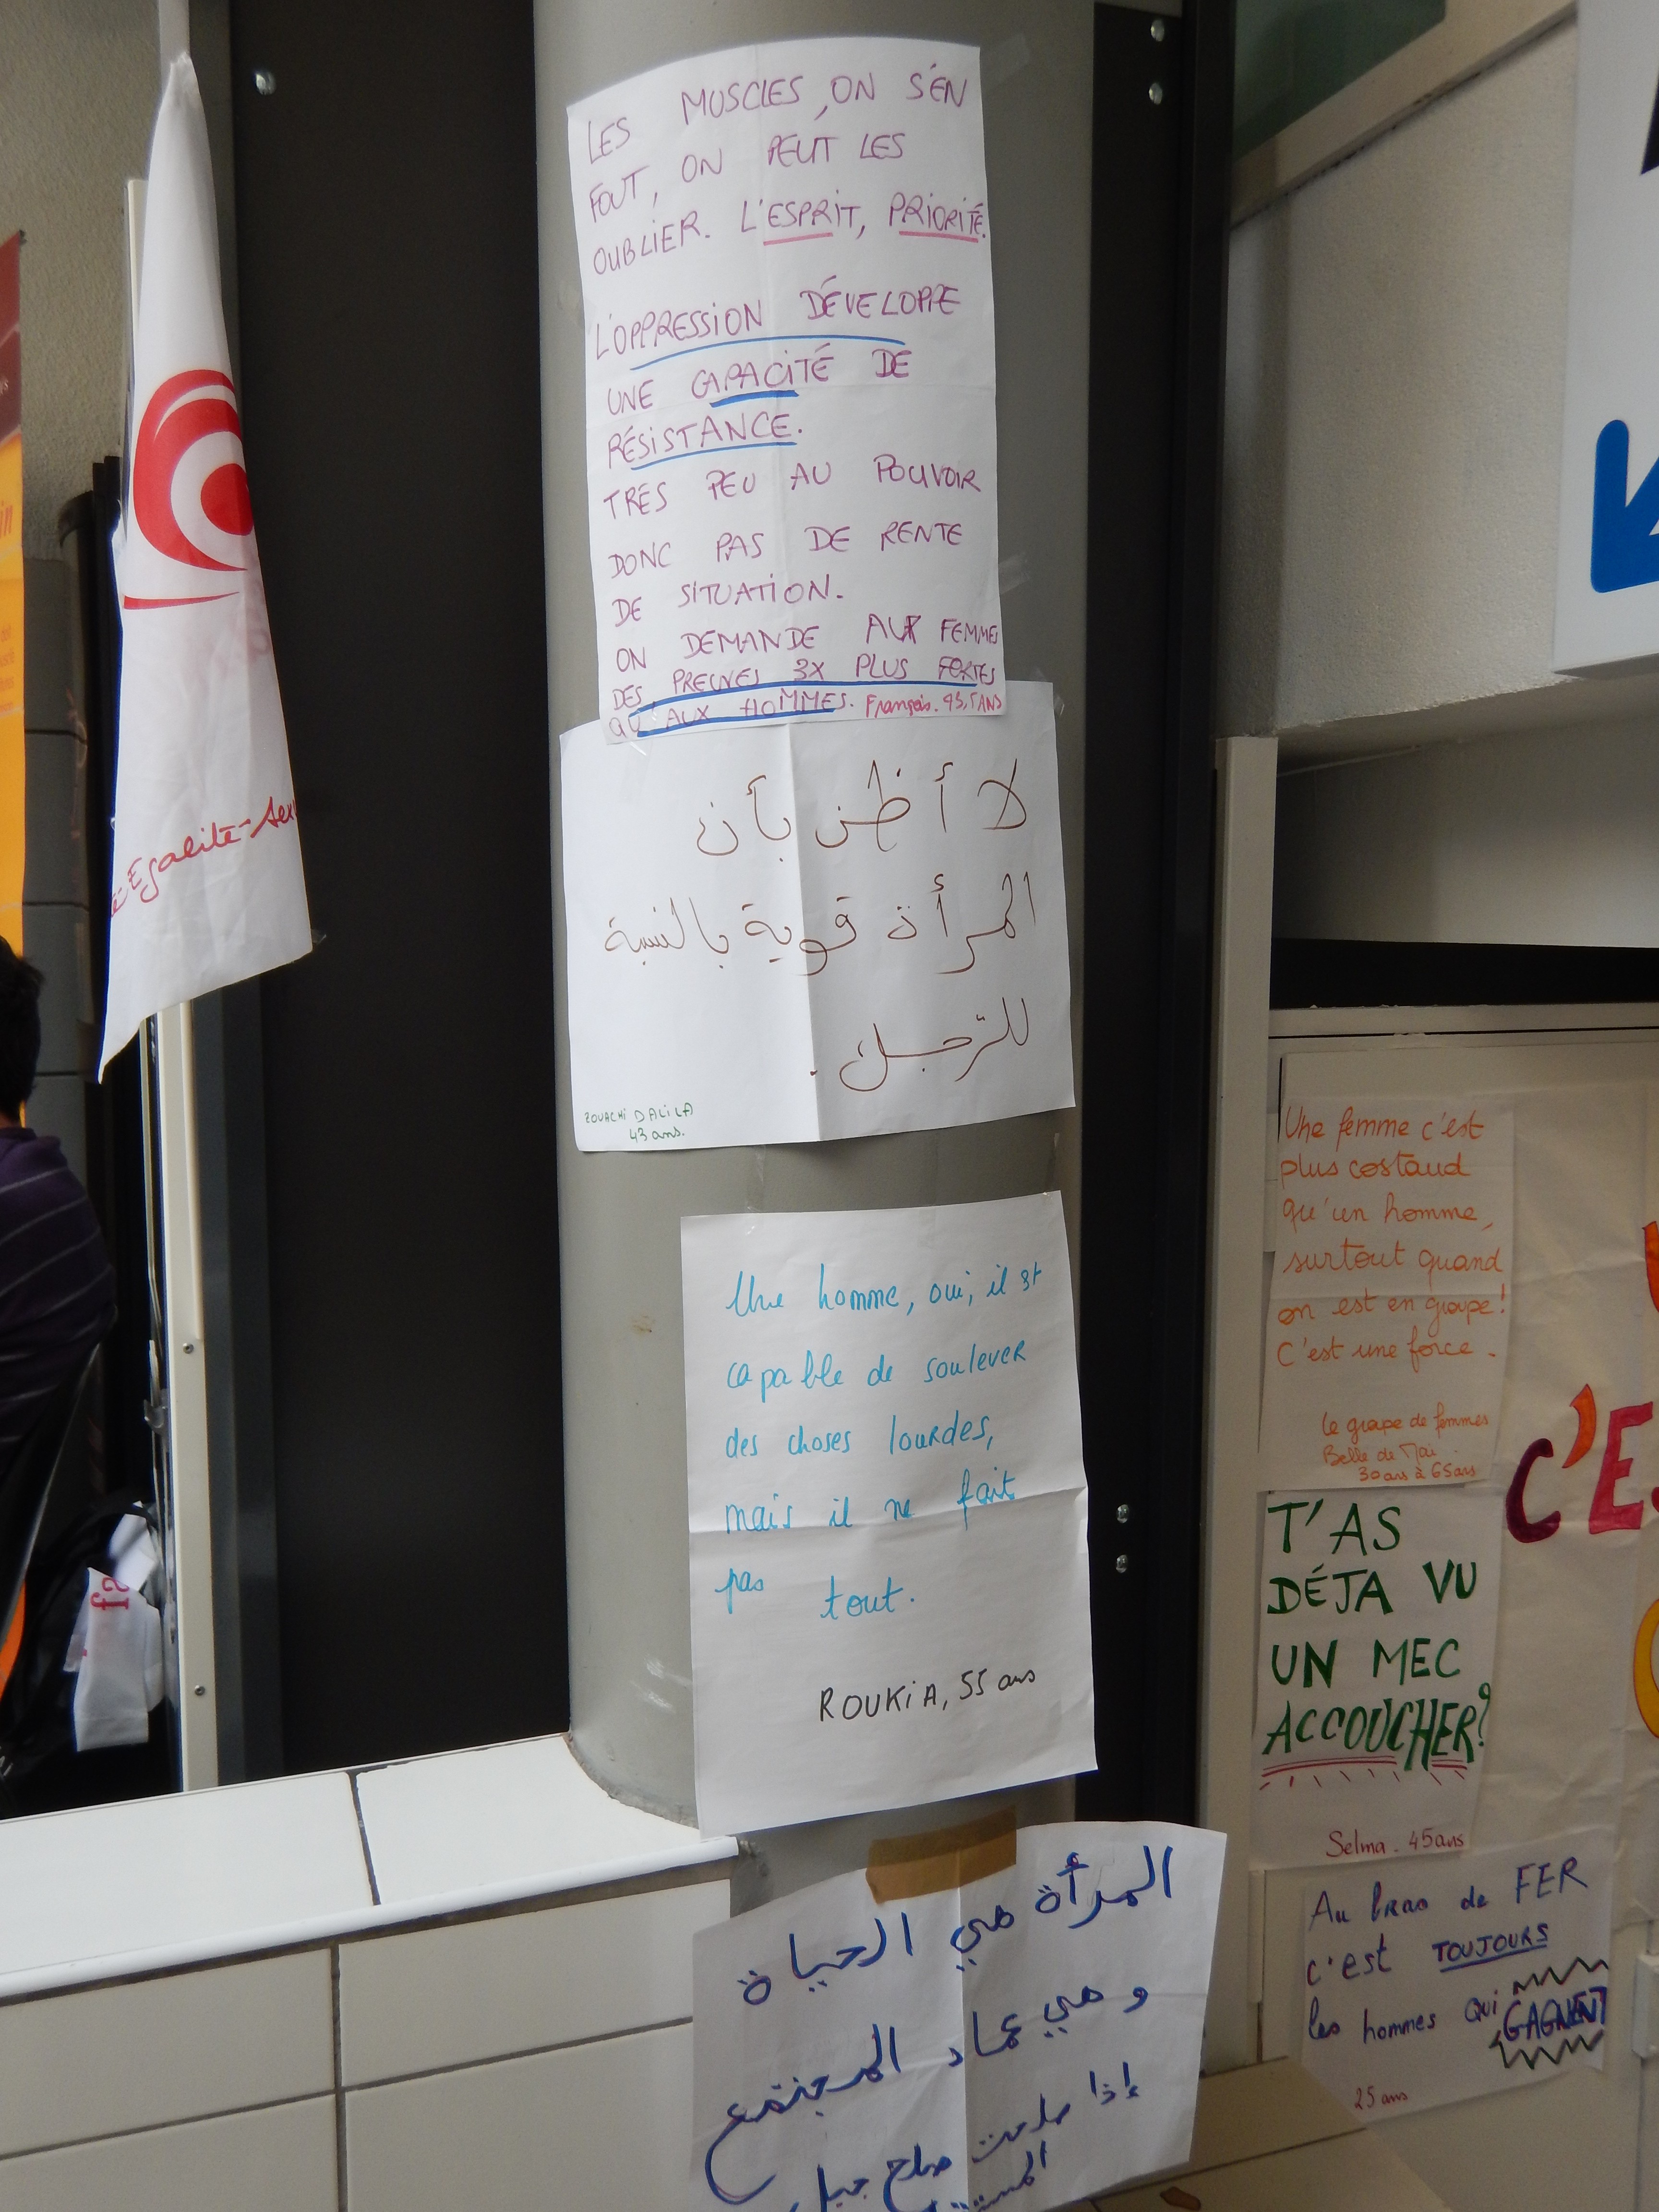 LES MUSCLES, ON S'EN
FOUT, ON PEUT LES
OUBLIER. L'ESPRIT, PRIORITÉ.
L'OPPRESSION DÉVELOPPE
UNE CAPACITÉ DE
RÉSISTANCE.
TRÉS PEU AU POUVOIR
DONC PAS DE RENTE
DE SITUATION.
ON DEMANDE AUX FEMMES
DES PREUVES 3X PLUS FORTES
QU'AUX HOMMES. François. 43,5 ANS
لا أظن بأن
المرأة قوية بالنسبة
للرّجل.
ZOUACHI DALILA
43 ans.
Une homme, oui, il st
capable de soulever
des choses lourdes,
mais il ne fait
pas tout.
ROUKiA, 55 ans
المرأة هي الحياة
و هي عماد المجتمع
إذا صلحت صلح جيل
Egalité-
Une femme c'est
plus costaud
qu'un homme,
surtout quand
on est en groupe!
C'est une force.
Le groupe de femmes
Belle de Mai.
30 ans à 65 ans
T'AS
DÉJA VU
UN MEC
ACCOUCHER?
Selma. 45 ans
Au bras de FER
c'est TOUJOURS
les hommes qui GAGNENT
25 ans